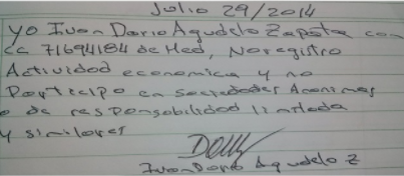 Julio 29/2014
Yo Ivan Dario Agudelo Zapata con
cc 71694184 de Med, No registro
Actividad economica y no
Participo en sociedades Anonimas
o de responsabilidad limitada
y similares
Ivan Dario Agudelo Z